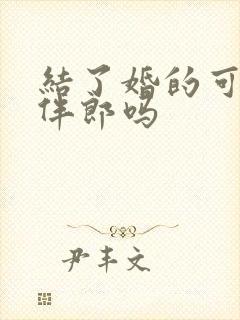 結了婚的可
伴郎吗
尹丰文